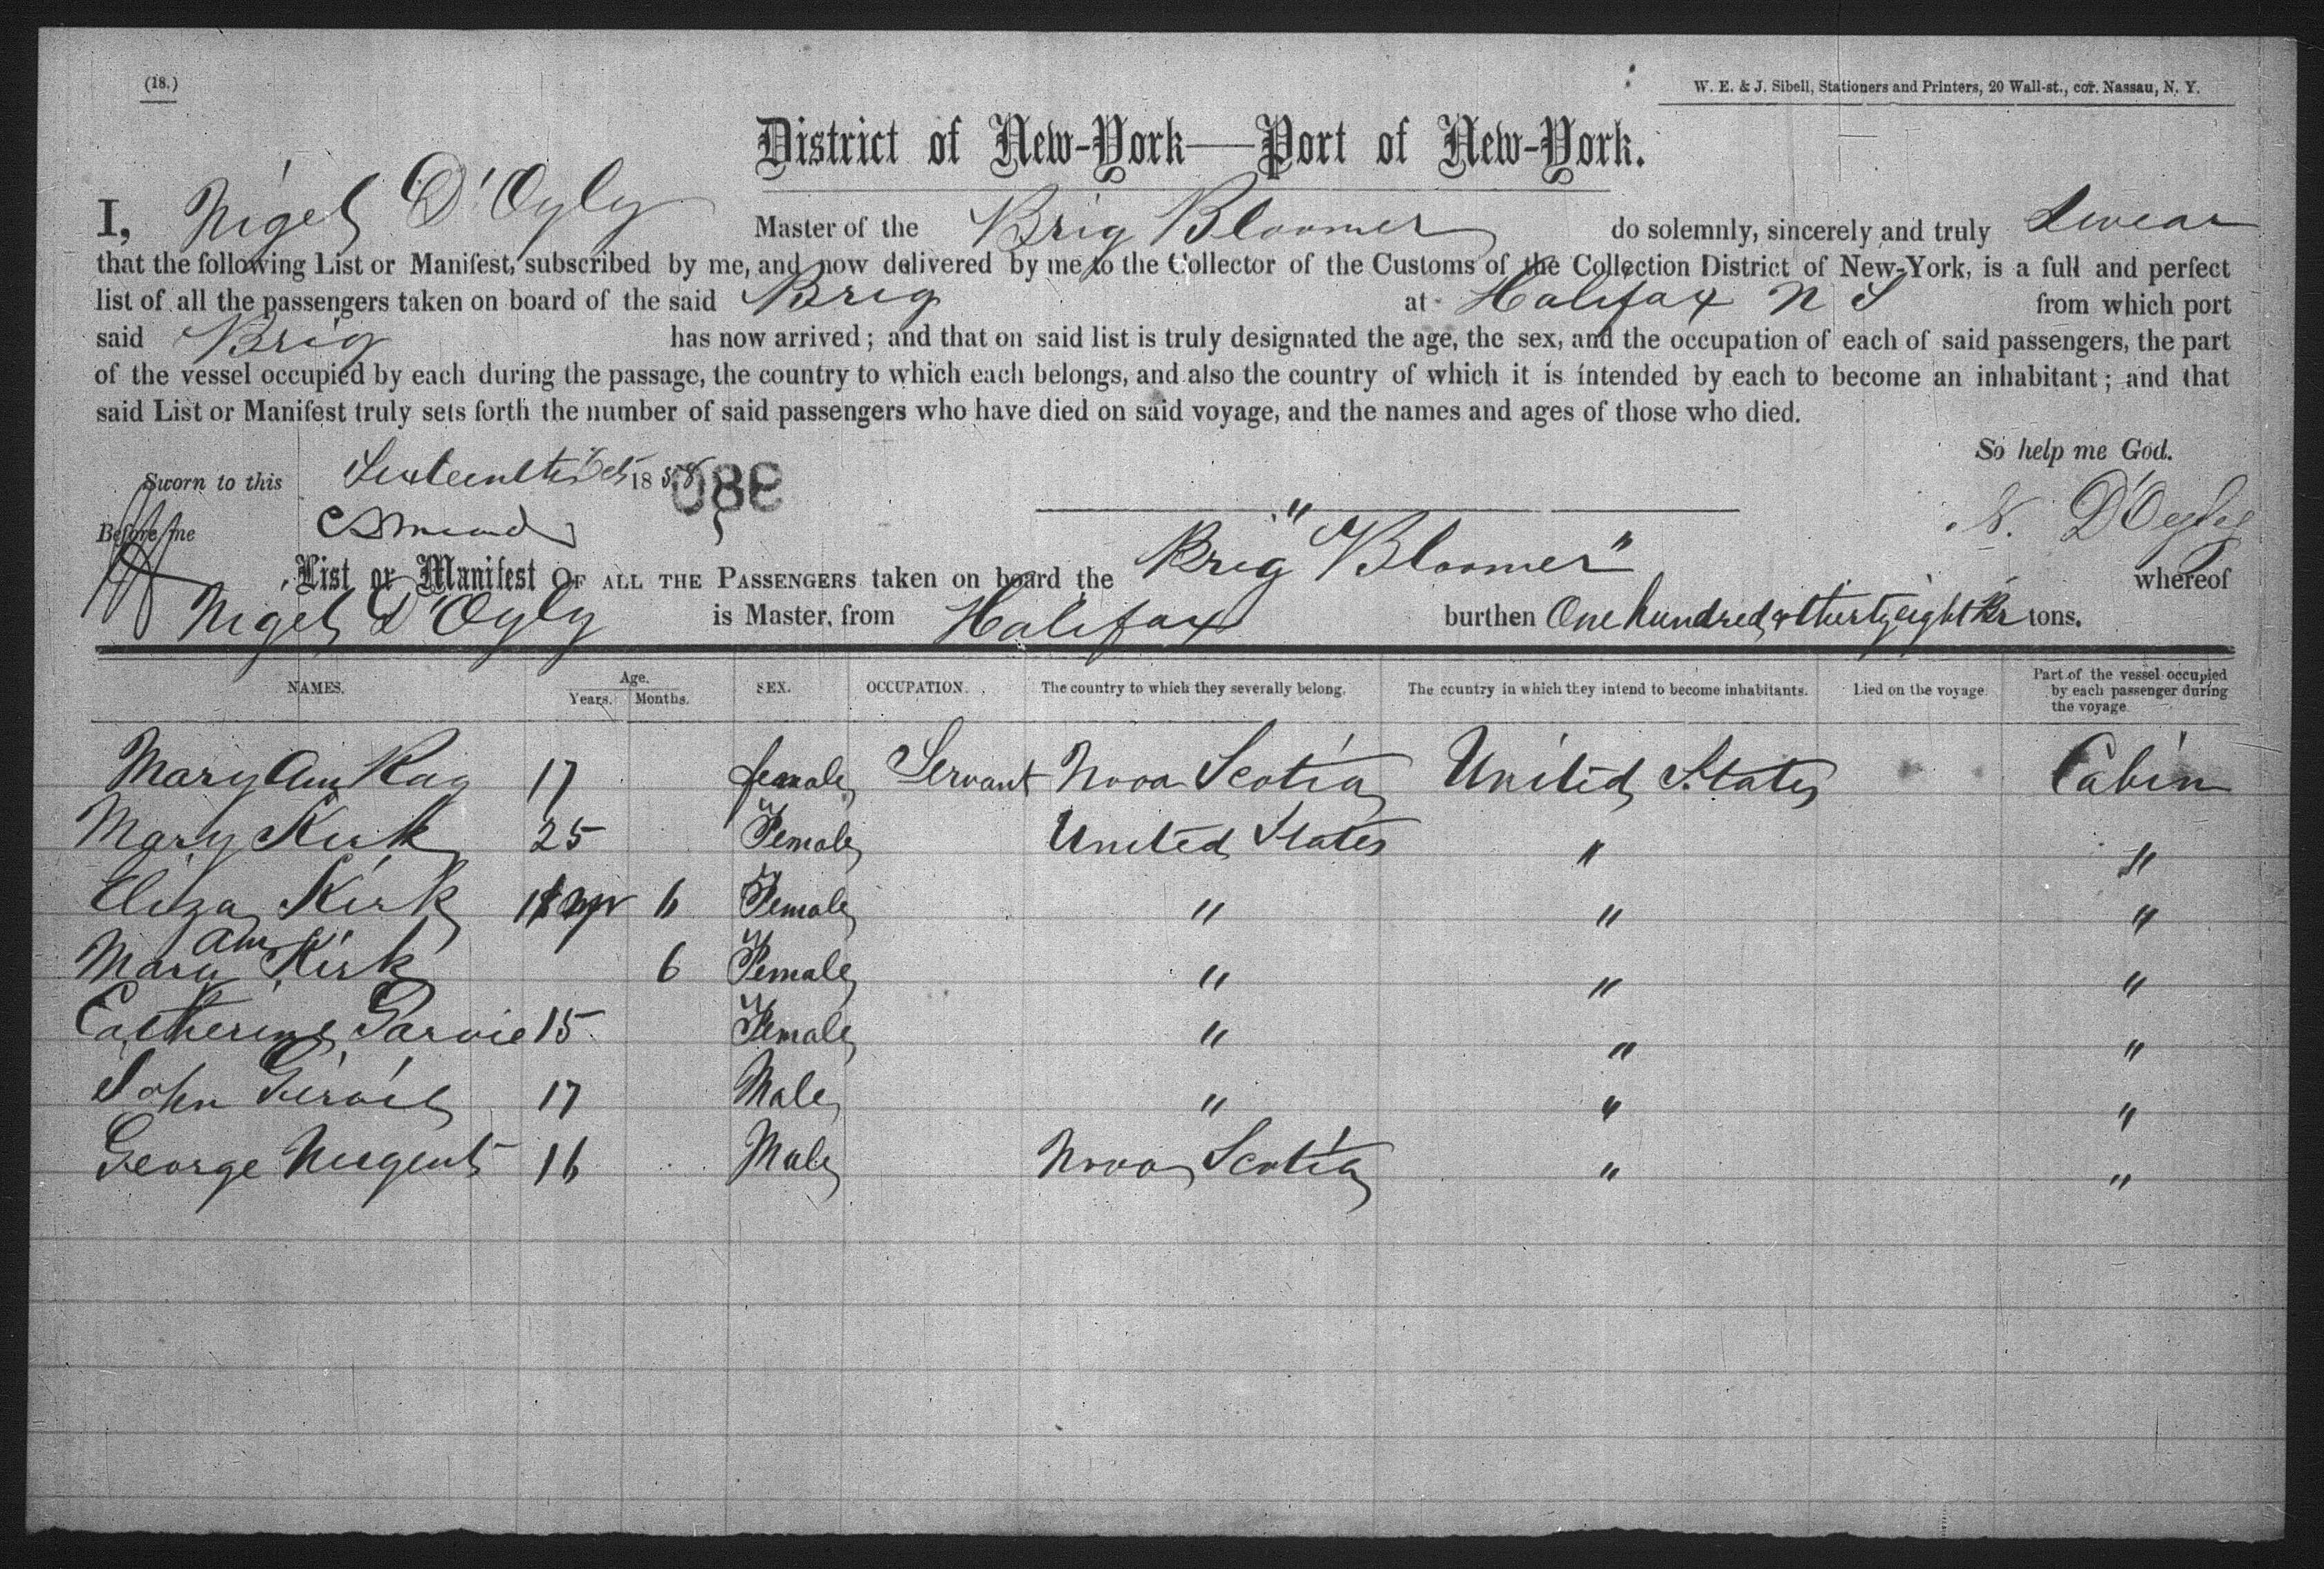 (18.)
W. E. & J. Sibell, Stationers and Printers, 20 Wall-st., cor. Nassau, N. Y.
District of New-York—Port of New-York.
I, Nigel D'Oyly Master of the Brig Bloomer do solemnly, sincerely and truly Swear
that the following List or Manifest, subscribed by me, and now delivered by me to the Collector of the Customs of the Collection District of New-York, is a full and perfect
list of all the passengers taken on board of the said Brig at Halifax N S from which port
said Brig has now arrived; and that on said list is truly designated the age, the sex, and the occupation of each of said passengers, the part
of the vessel occupied by each during the passage, the country to which each belongs, and also the country of which it is intended by each to become an inhabitant; and that
said List or Manifest truly sets forth the number of said passengers who have died on said voyage, and the names and ages of those who died.
So help me God.
Sworn to this Sixteenth 18 58
N. D'Oyly
Before me
List or Manifest OF ALL THE PASSENGERS taken on board the Brig "Bloomer" whereof
Nigel D'Oyly is Master, from Halifax burthen One hundred & thirty eight Br tons.
NAMES. Age. Years. Months. SEX. OCCUPATION. The country to which they severally belong. The country in which they intend to become inhabitants. Died on the voyage. Part of the vessel occupied by each passenger during the voyage.
Mary Ann Kag 17 female Servant Nova Scotia United States Cabin
Mary Kirk 25 Female United States " "
Eliza Kirk 6 Female " " "
Mary Ann Kirk 6 Female " " "
Catherine Garvie 15 Female " " "
John 17 Male " " "
George Nugent 16 Male Nova Scotia " "